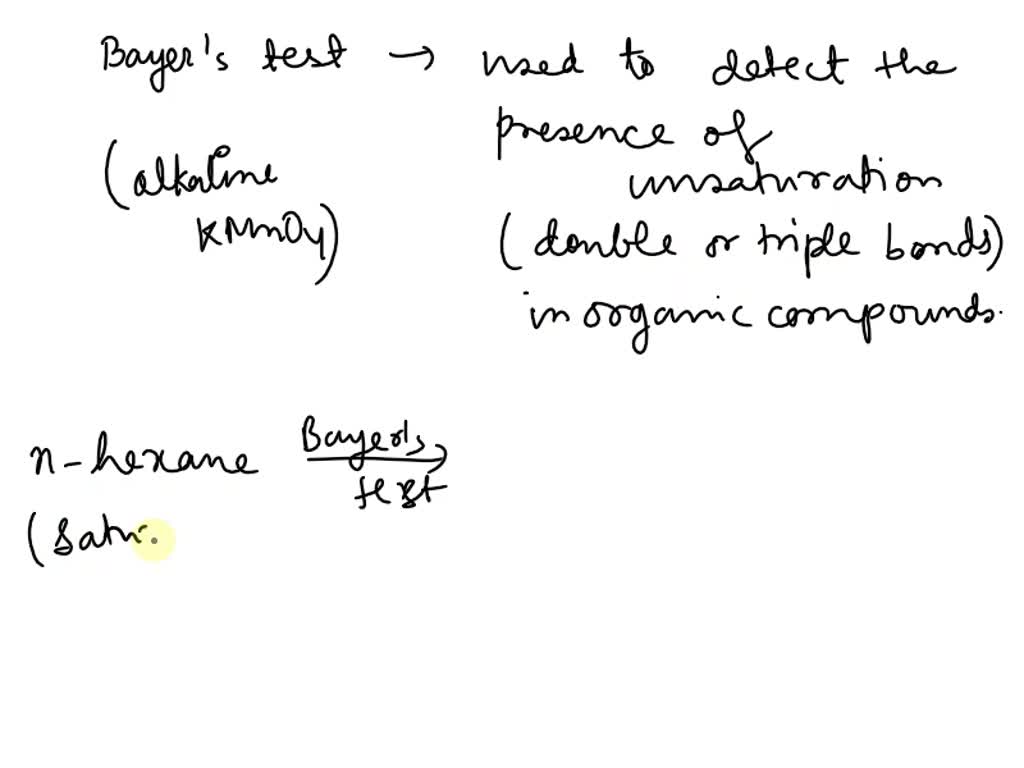 Bayer's test → used to detect the
presence of
unsaturation
(alkaline
KMnO4)
(double or triple bonds)
in organic compounds.
n-hexane Bayer's
test
(Satur